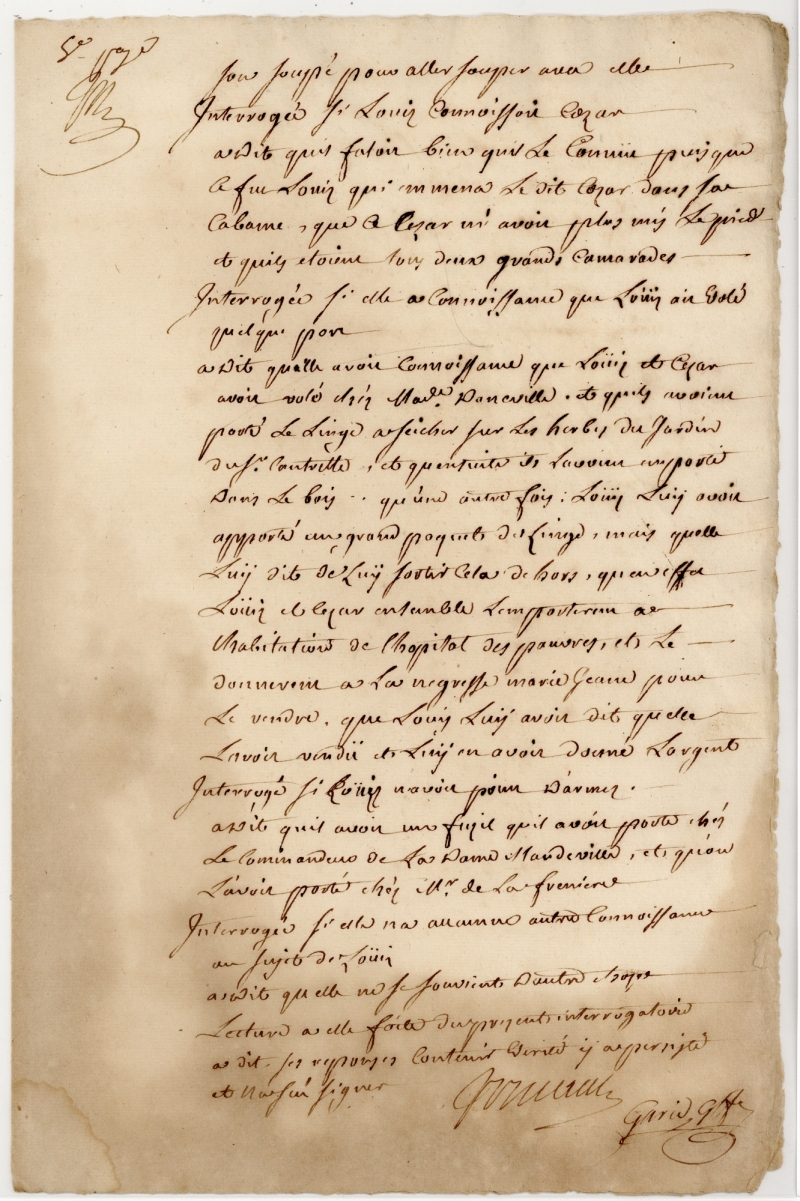 5e page
son soupé pour aller souper avec elle
Interrogée si Louis Connoissoit Cezar
a dit qu'il faloit bien quil Le Connut puisque
Ce fut Louis qui emmena Le dit Cezar dans sa
Cabanne, que Cezar ni avoit plus mis Le pied
et quils etoient tous deux grands Camarades
Interrogée si elle a Connoissance que Loüis ait Volé
quelque part
a dit quelle avoit Connoissance que Loüis et Cezar
avoit volé chés Made. Daneville, et quils avoient
porté Le Linge a seicher sur Les herbes du Jardin
du Sr. , et quensuite ils Lavoient emporté
Dans Le bois quune autre fois, Loüis Luy avoit
apporté un grand paquet de Linge, mais quelle
Luy dit de Luy sortir Cela dehors, quen effet
Loüis et Cezar ensemble Lemporterent a
Lhabitation de Lhopital des pauvres, et Le
donnerent a La negresse marie Jeane pour
Le vendre, que Loüis Luy avoit dit quelle
Lavoit vendu et Luy en avoit donné Largent
Interrogé si Loüis navoit point Darmes.
a Dit quil avoit un fuzil quil avoit porté chés
Le Commandeur de La Dame Mandeville, et quon
Lavoit porté chés Mr. de La freniere
Interrogée si elle na aucunne autre Connoissance
au sujet de Loüis
a dit quelle ne se souvient Dautre chose
Lecture a elle faite du present interrogatoire
a dit ses reponses Contenir Verité y a persisté
et na sçu signer
Garic Gffr